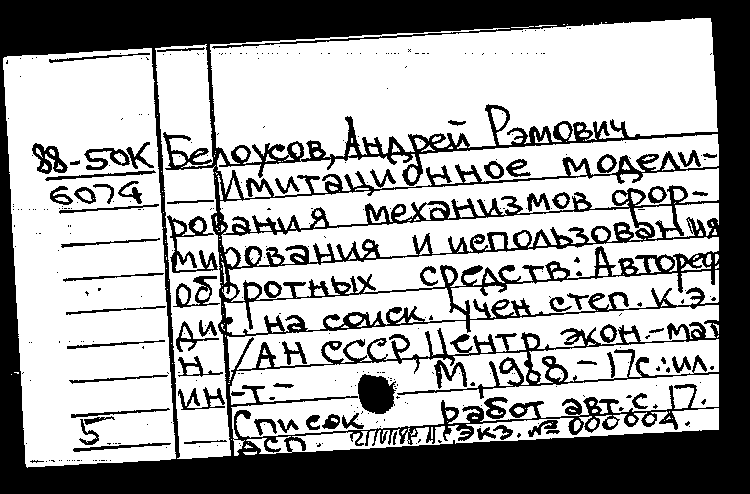 88-50К Белоусов, Андрей Рэмович.
6074 Имитационное модели-
рования механизмов фор-
мирования и использования
оборотных средств: Автореф
дис. на соиск. учен. степ. к.э.
н. /АН СССР, Центр. экон.-мат
ин-т.- М., 1988.- 17с.:ил.
Список работ авт.: с. 17.
5 ДСП. Экз. № 000004.